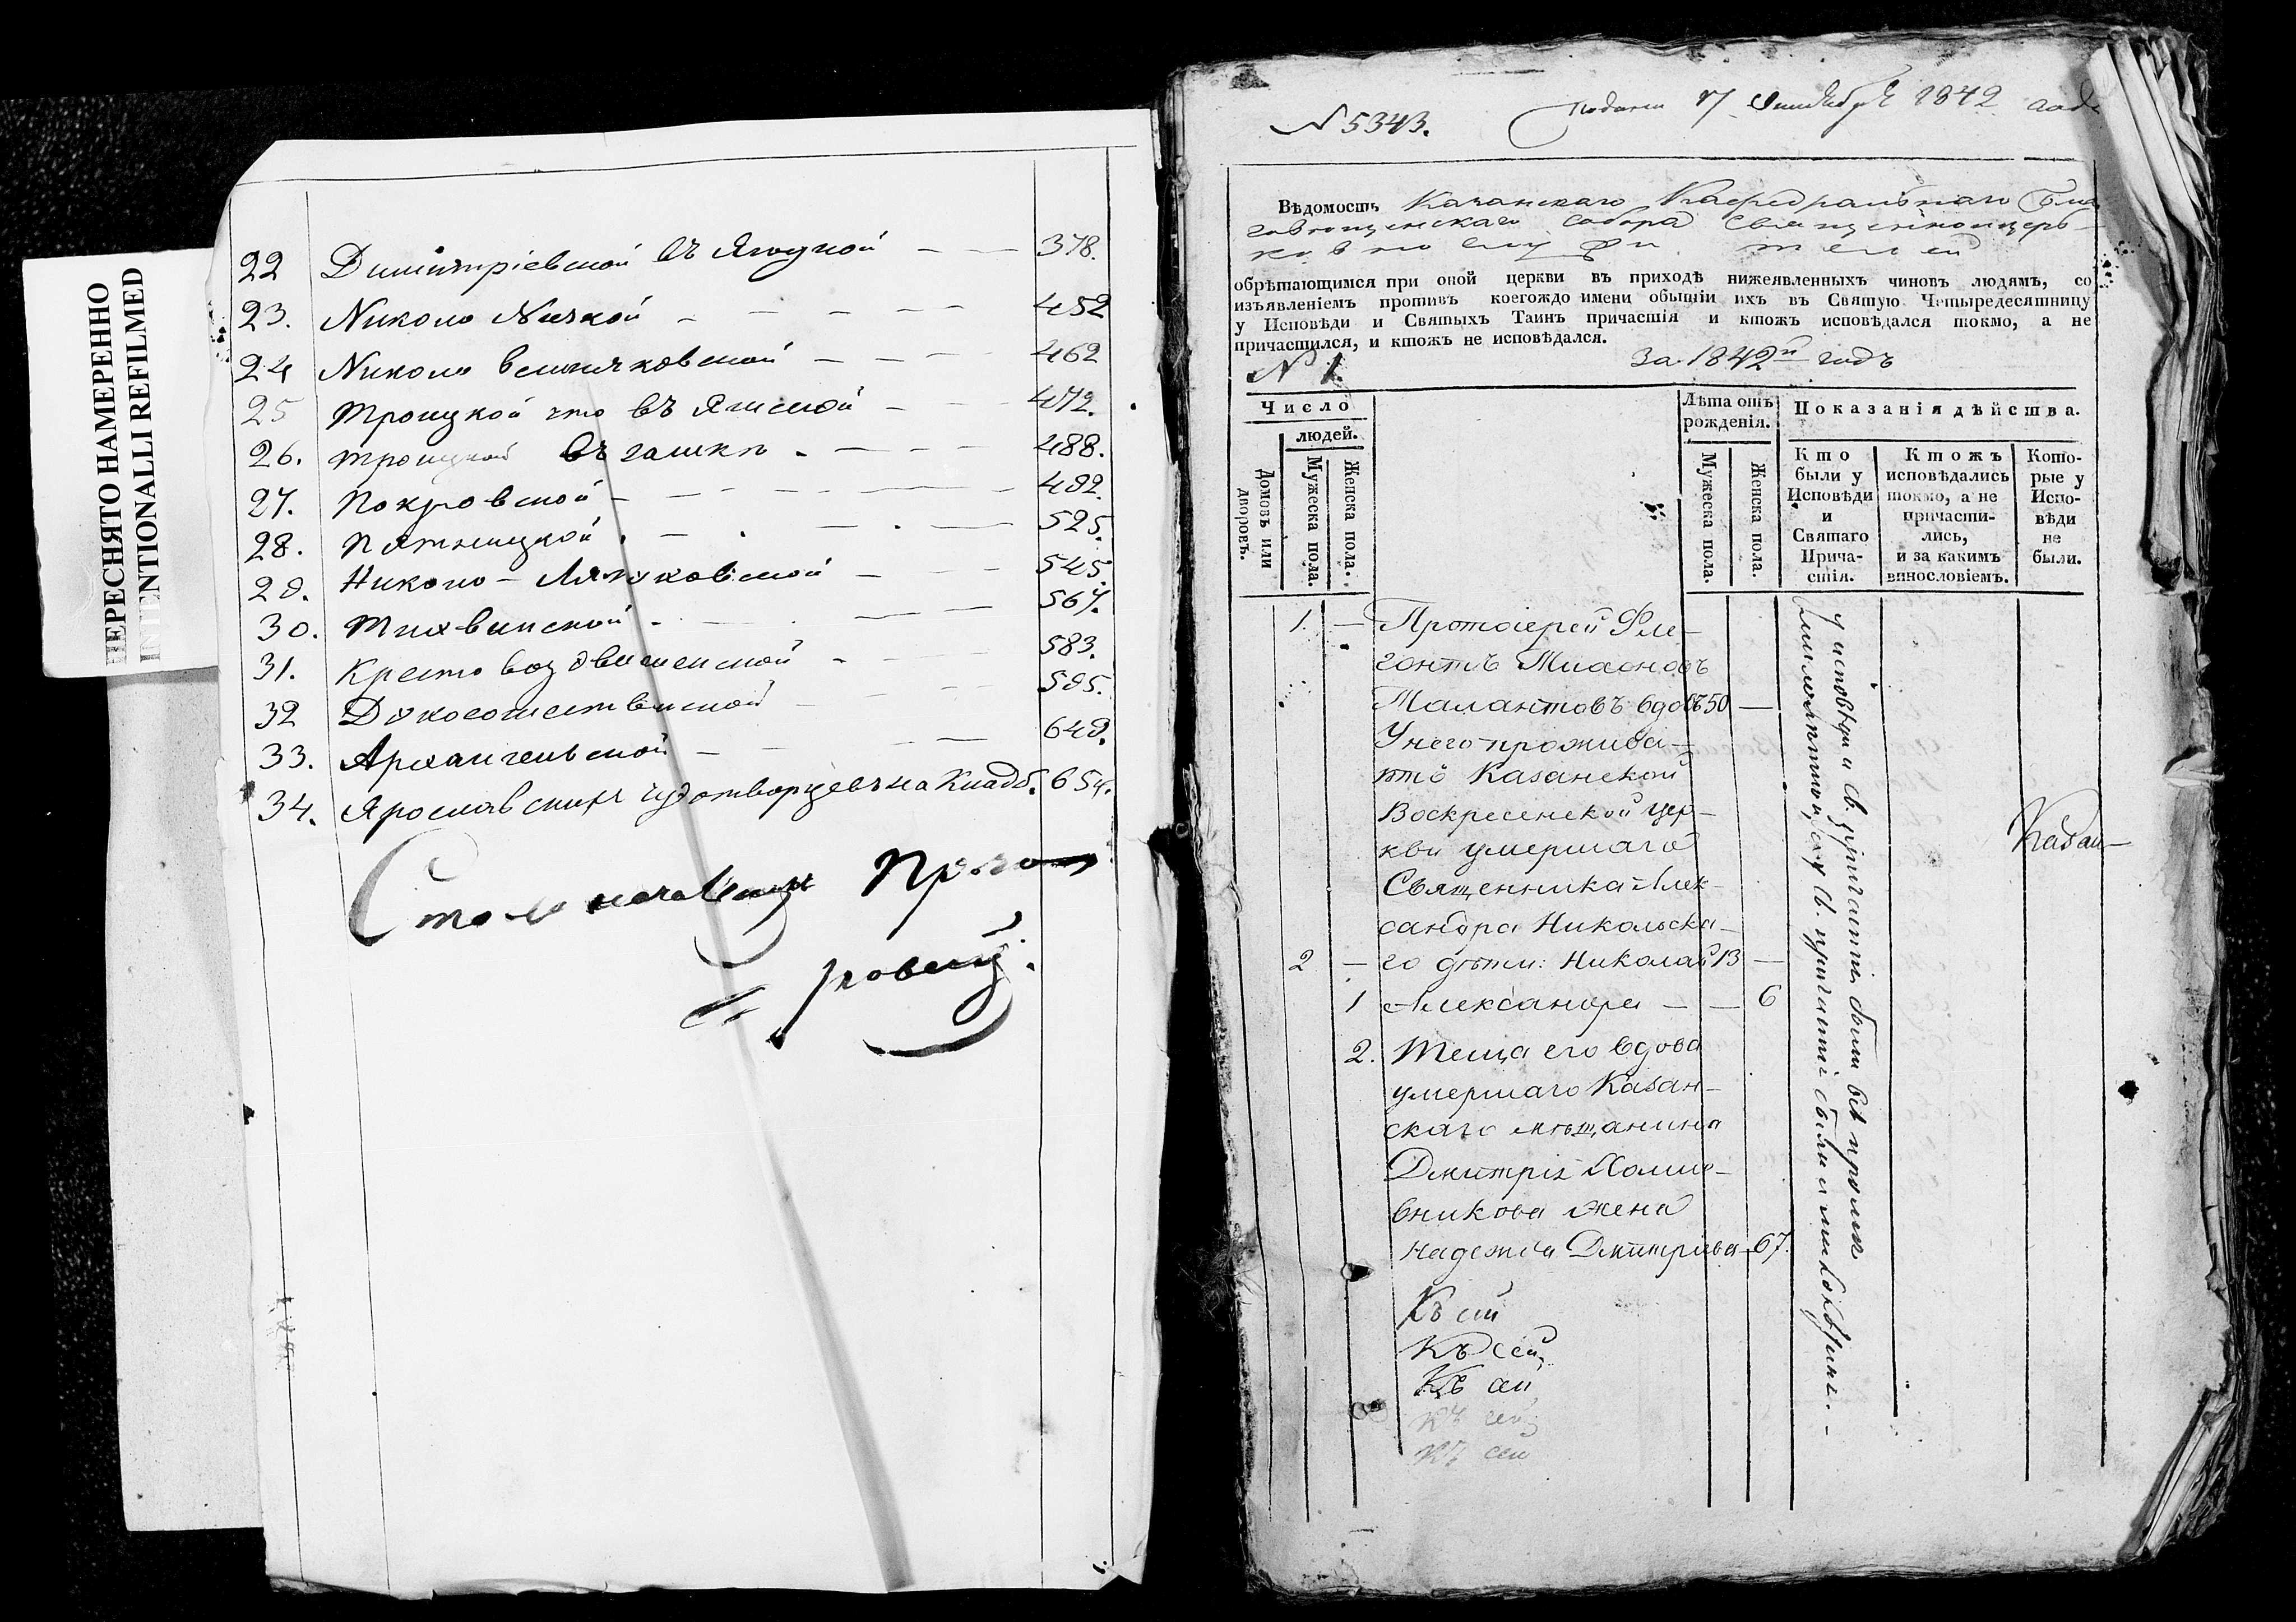 ПЕРЕСНЯТО НАМЕРЕННО
INTENTIONALLI REFILMED
22 Димитріевской въ Ягодной — — 378.
23. Николо Низкой — — — — 452
24 Николо — — — 462
25 Троицкой что въ — — 472.
26. Троицкой въ — — — 488.
27. Покровской — — — — 492.
28. Пятницкой — — 525.
29. Николо - Ляпуновской — — — 545.
30. Тихвинской — — 567.
31. Крестовоздвиженской — — — 583.
32 Духосошественской — — — 595.
33. Архангельской — — — 649.
34. Ярославскихъ чудотворцевъ на Кладб. 654.
Столоначальникъ
N 5343. 17 Октября 1842 года
Вѣдомость Казанскаго Кафедральнаго Бла
говѣщенскаго Собора Священноцерь-
ковно служителей
обрѣтающимся при оной церкви въ приходѣ нижеявленныхъ чиновъ людямъ, со
изъявленіемъ противъ коегождо имени обытіи ихъ въ Святую Четыредесятницу
у Исповѣди и Святыхъ Таинъ причастія и ктожъ исповѣдался токмо, а не
причастился, и ктожъ не исповѣдался.
За 1842й годъ
N 1.
Число
людей.
Домовъ или дворовъ.
Мужеска пола.
Женска пола.
Лѣта отъ рожденія.
Мужеска пола.
Женска пола.
Показанія дѣйства.
Кто были у Исповѣди и Святаго Причастія.
Ктожъ исповѣдались токмо, а не причастились, и за какимъ винословіемъ.
Которые у Исповѣди не были.
1. — Протоіерей Фле-
гонтъ
Талантовъ вдовъ 50 —
У него прожива-
ютъ Казанской
Воскресенской цер-
кви умершаго
Священника Алек-
сандра Никольска-
2 — го дѣти: Николай 13 —
1 Александра — — 6
2. Теща его вдова
умершаго Казан-
скаго мѣщанина
Дмитрія
жена
Надежда Дмитріева 67.
Къ сей
Къ сей
Къ сей
Къ сей
Къ сей
у исповѣди и св. причастія были всѣ кромѣ